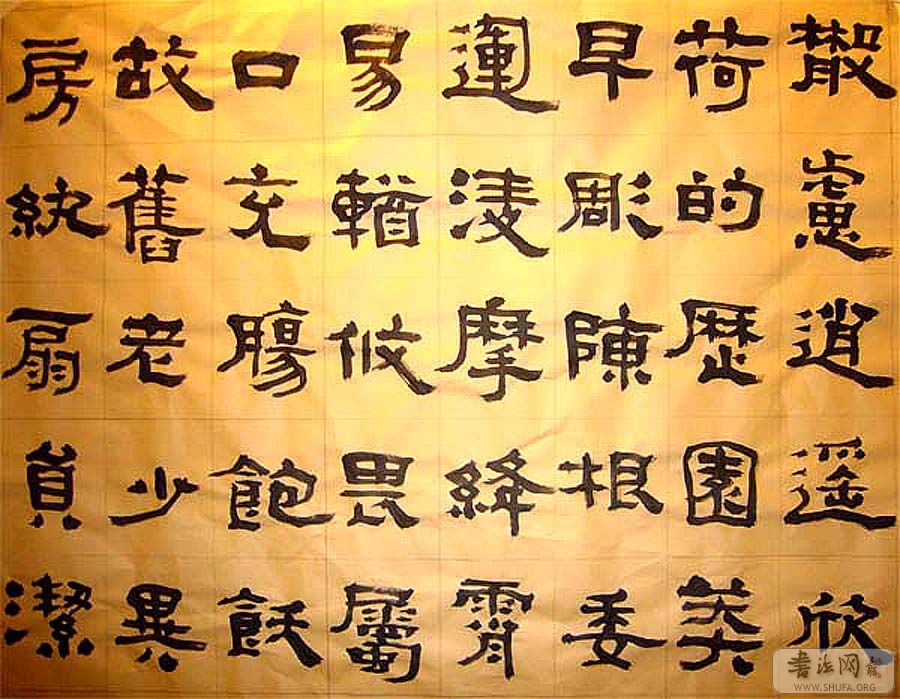 散慮逍遙欣
荷的歷園莽
早彫陳根委
運淩摩絳霄
易輶攸畏屬
口充腸飽飫
故舊老少異
房紈扇員潔
書法网
WWW.SHUFA.ORG